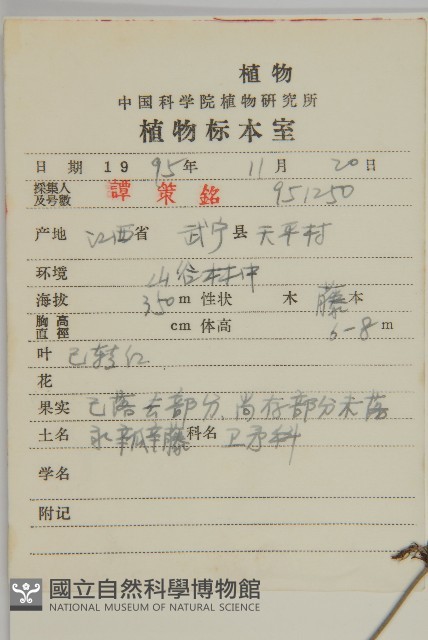 植物
中国科学院植物研究所
植物标本室
日期 1995年 11月 20日
採集人及号數 譚策銘 951250
产地 江西省 武宁县 天平村
环境 山谷林中
海拔 350m 性状 木 藤本
胸高直徑 cm 体高 6-8m
叶 已转红
花
果实 已落去部分，尚存部分未落
土名 科名 卫矛科
学名
附记
國立自然科學博物館
NATIONAL MUSEUM OF NATURAL SCIENCE